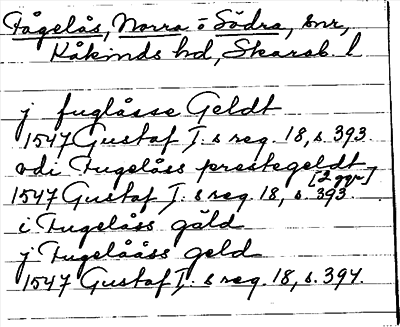 Fågelås, Norra o Södra, snr,
Kåkinds hd, Skarab. l
j fuglåsse Geldt
1547 Gustaf I. s reg. 18, s. 393.
vdi Fugelåss prestegeldt
[2 ggr]
1547 Gustaf I. s reg. 18, s. 393.
i Fugelåss gäld
j Fugelååss geld
1547 Gustaf I. s reg. 18, s. 394.